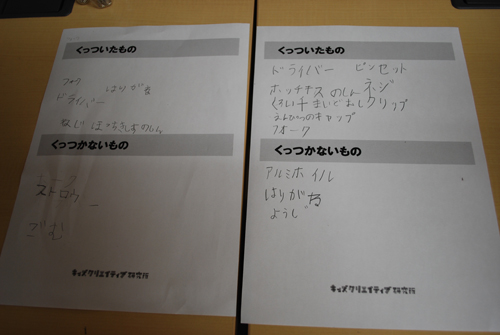 くっついたもの
フォク はりがね
ドライバー
ねじ ほっちきすのしん
くっつかないもの
ストロウ
ごむ
キッズクリエイティブ研究所
くっついたもの
ドライバー ピンセット
ホッチキスのしん ネジ
クリップ
えんぴつのキャップ
フォーク
くっつかないもの
アルミホイル
はりがね
ようじ
キッズクリエイティブ研究所